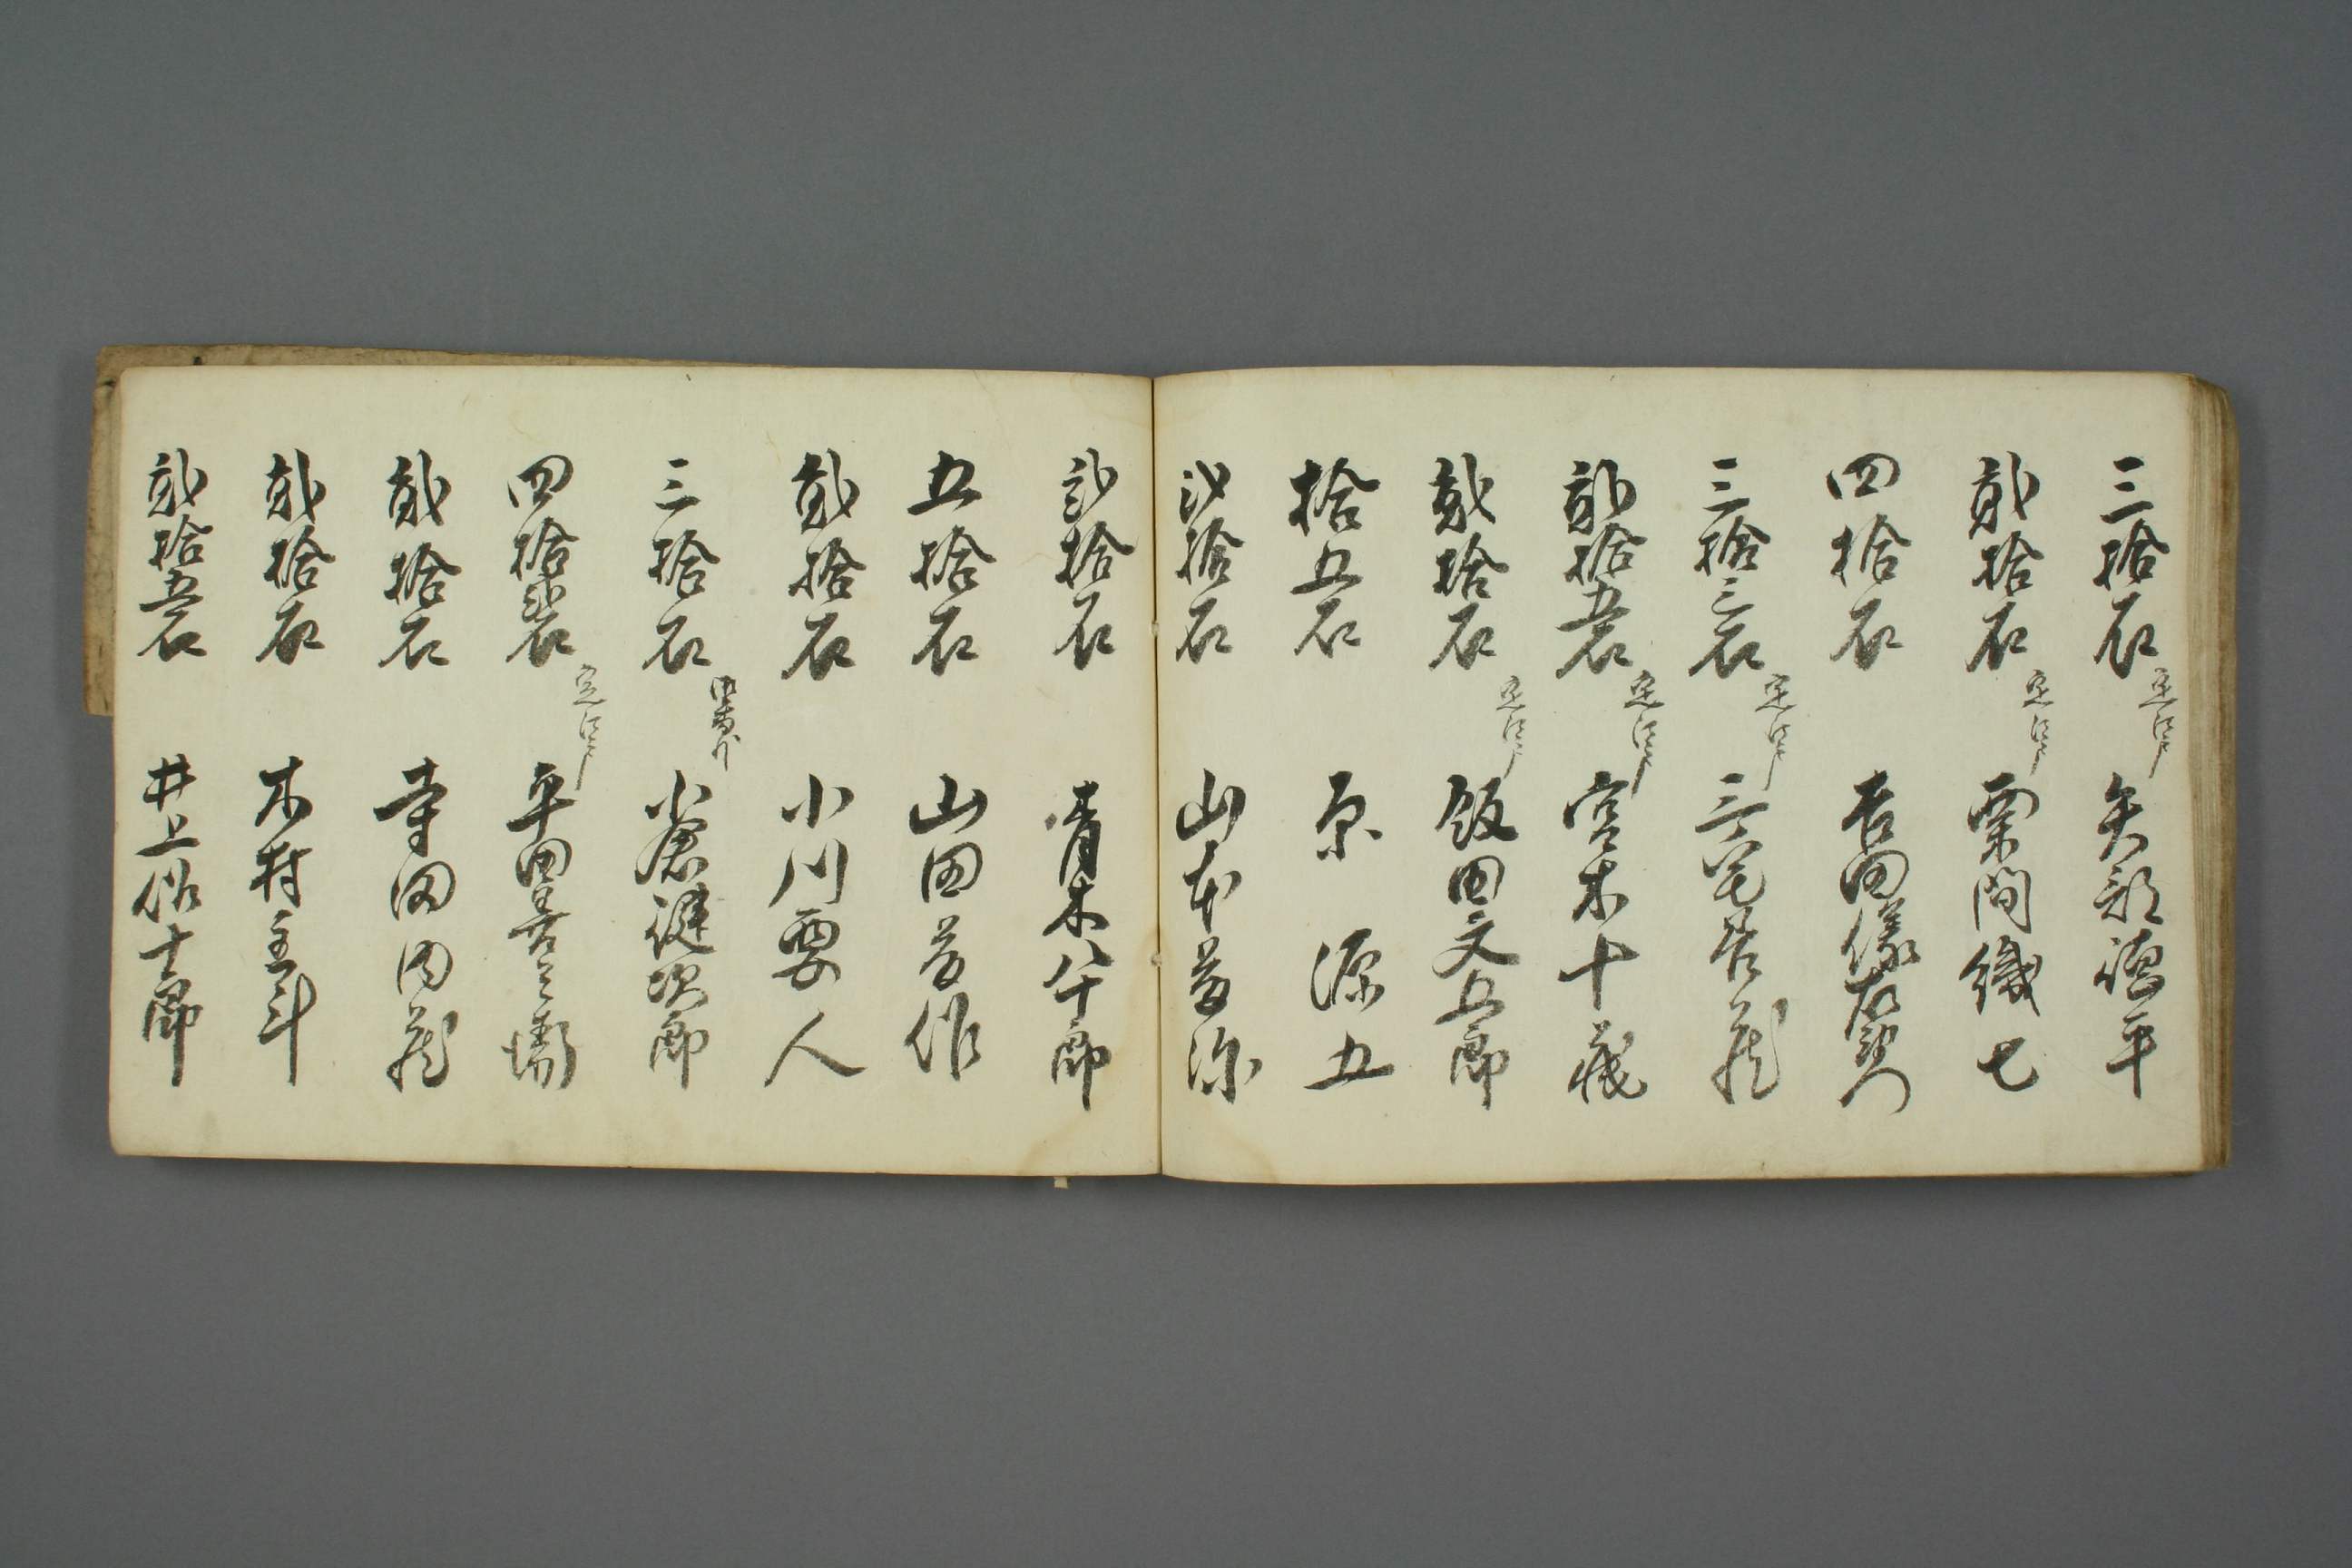 三拾石 定江戸 矢部徳平
弐拾石 定江戸 栗間織七
四拾石 吉田儀左衛門
三拾三石 定江戸 三宅 蔵
弐拾五石 定江戸 宮木十蔵
弐拾石 定江戸 飯田文五郎
拾五石 原 源五
弐拾石 山本 弥
弐拾石 青木八十郎
五拾石 山田 作
弐拾石 小川要人
三拾石 小倉健次郎
四拾弐石 定江戸 平田喜兵衛
弐拾石 寺田内蔵
弐拾石 木村主斗
弐拾五石 井上佐十郎